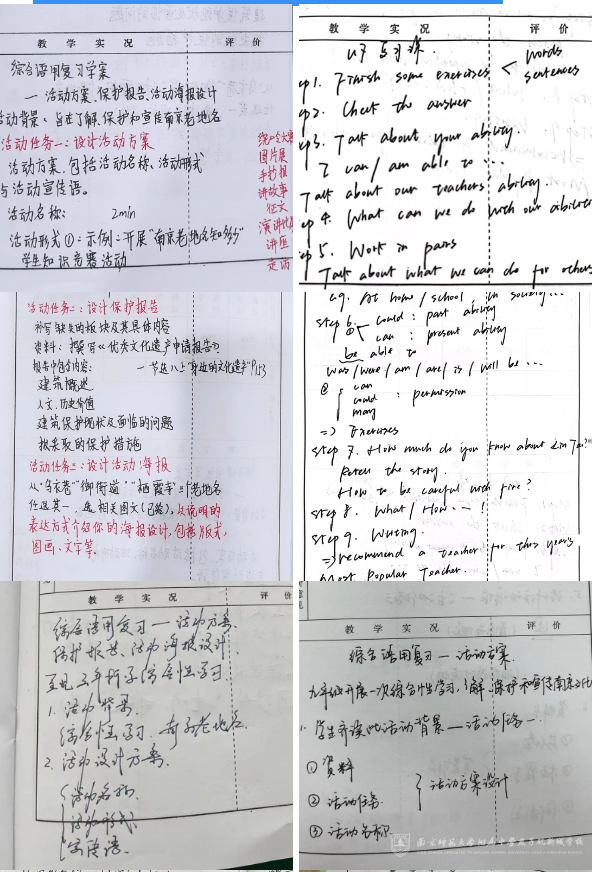 教 学 实 况 评 价
综合语用复习学案
— 活动方案、保护报告、活动海报设计
活动背景：旨在了解、保护和宣传南京老地名
活动任务一：设计活动方案
活动方案，包括活动名称、活动形式
与活动宣传语。
活动名称： 2min
活动形式①：示例：开展"南京老地名知多少"
学生知识竞赛活动
图片展
手抄报
讲故事
征文
演讲比赛
讲座
走访
教 学 实 况 评 价
U7 复习课
words
ep1. Finish some exercises < sentences
ep2. Check the answer
ep3. Talk about your ability.
I can / am able to ...
Talk about our teachers' ability.
ep 4. What can we do with our abilities
ep 5. Work in pairs
Talk about what we can do for others
活动任务二：设计保护报告
补写缺失的板块及其具体内容
资料：撰写《优秀文化遗产申请报告》
报告中包含内容：
— 节选八上"身边的文化遗产"P113
建筑概述
人文、历史价值
建筑保护现状及面临的问题
拟采取的保护措施
活动任务三：设计活动海报
从"乌衣巷""御街道""栖霞寺"三个老地名
任选其一，选相关图文(已给)，以说明的
表达方式介绍你的海报设计，包括版式，
图画、文字等。
eg. At home / school / in society...
step 6. ① could : past ability
can : present ability
be able to
was / were / am / are / is / will be ...
② can
could : permission
may
=> Exercises
step 7. How much do you know about Lin Tao?
Retell the story.
How to be careful with fire?
step 8. What / How ... !
step 9. Writing.
=> recommend a teacher for this year's
Most Popular Teacher.
教 学 实 况 评 价
综合语用复习 — 活动方案
保护报告、活动海报设计
1. 活动背景
综合性学习，南京老地名
2. 活动设计方案
活动名称
活动形式
宣传语
教 学 实 况 评 价
综合语用复习 — 活动方案
九年级开展一次综合性学习，了解、保护和宣传南京文化
1. 学生齐读此活动背景 — 活动任务一
① 资料
② 活动任务 } 活动方案设计
③ 活动名称
南京师范大学附属中学江宁新城学校